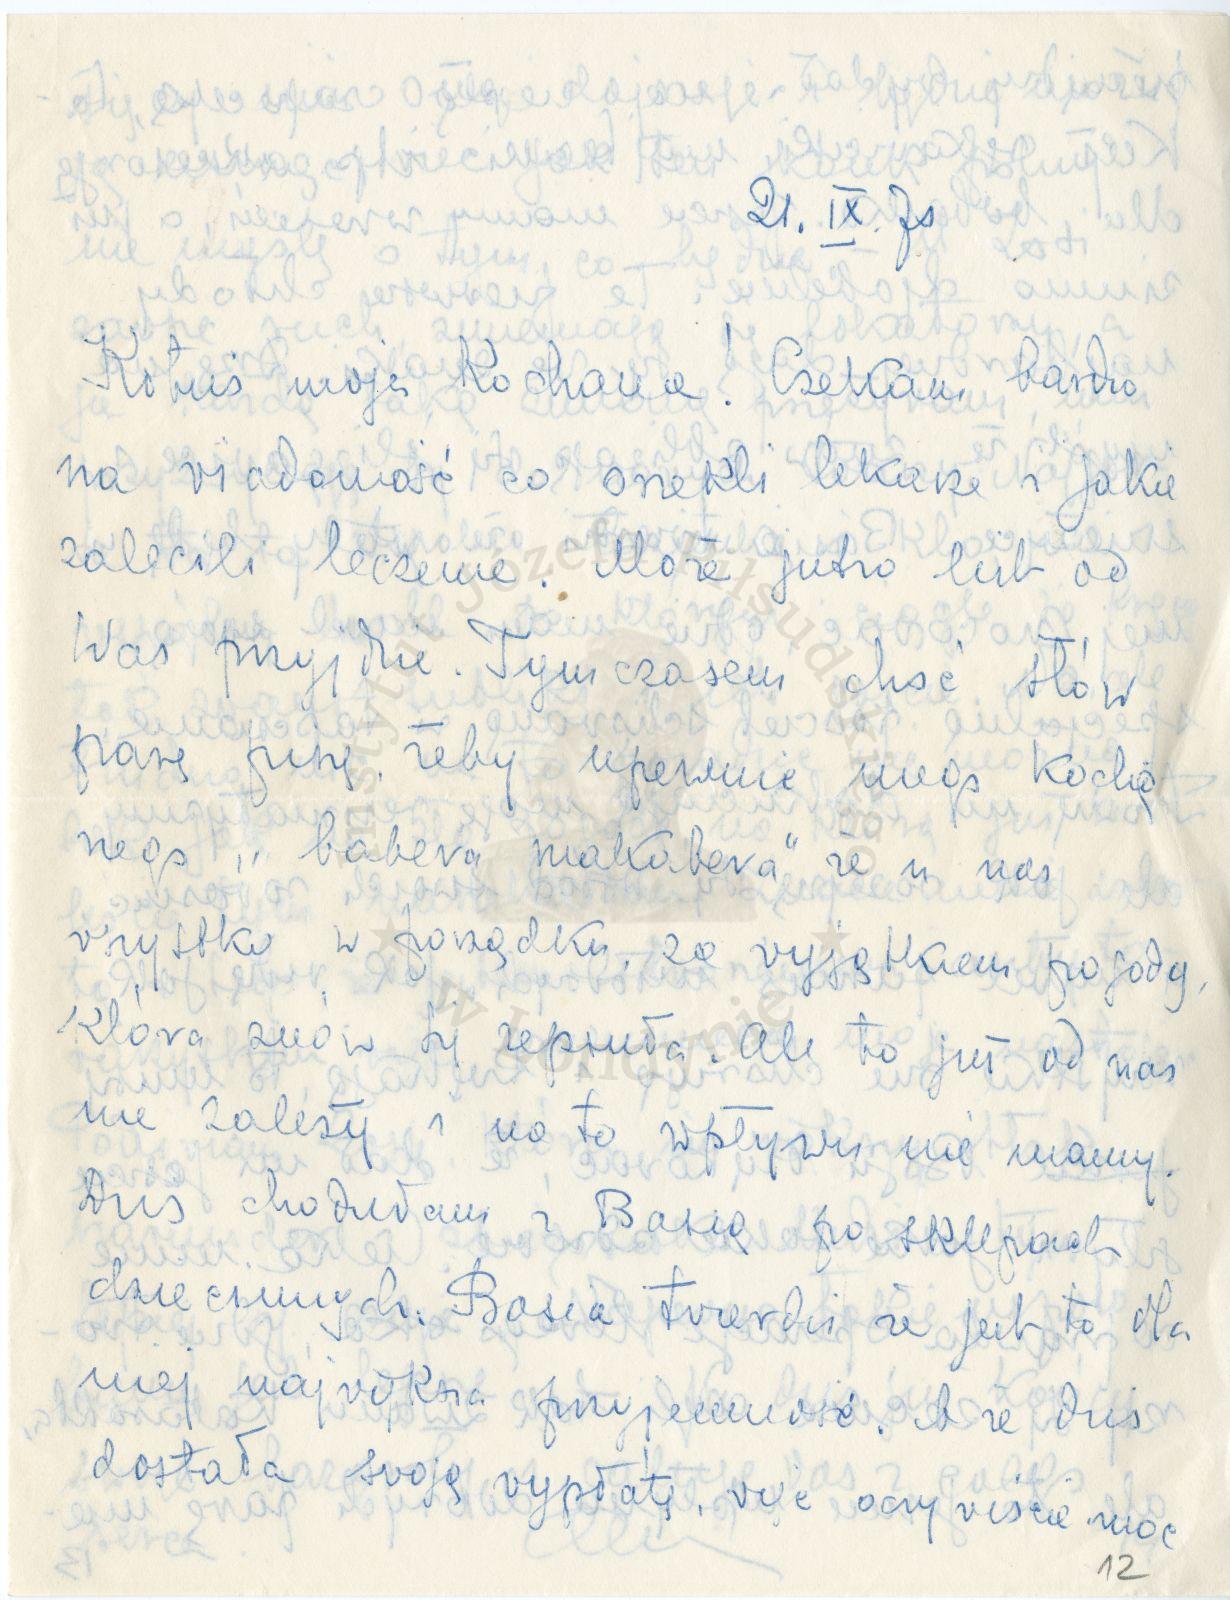 21. IX. 70
Kotuś moja Kochana! Czekam bardzo
na wiadomość co orzekli lekarze i jakie
zalecili leczenie. Może jutro list od
Was przyjdzie. Tymczasem choć słów
parę piszę, żeby upewnić mego Kocha
nego „babera makabera" że u nas
wszystko w porządku, za wyjątkiem pogody,
która znów się zepsuła. Ale to już od nas
nie zależy i na to wpływu nie mamy.
Dziś chodziłam z Basią po sklepach
dziecinnych. Basia twierdzi że jest to dla
niej największa przyjemność. A że dziś
dostała swoją wypłatę, więc oczywiście moc
12
Instytut Józefa Piłsudskiego
w Londynie